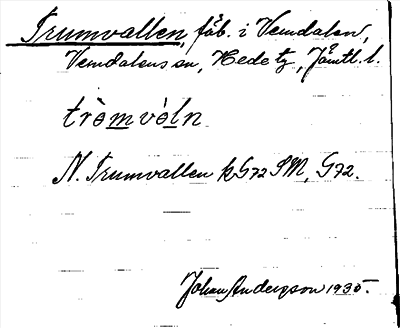 Trumvallen, fäb. i Vemdalen,
Vemdalens sn, Hede tg, Jämtl. l.
tròm vòln
N. Trumvallen k G72 SM, G72.
Johan Anderson 1935.